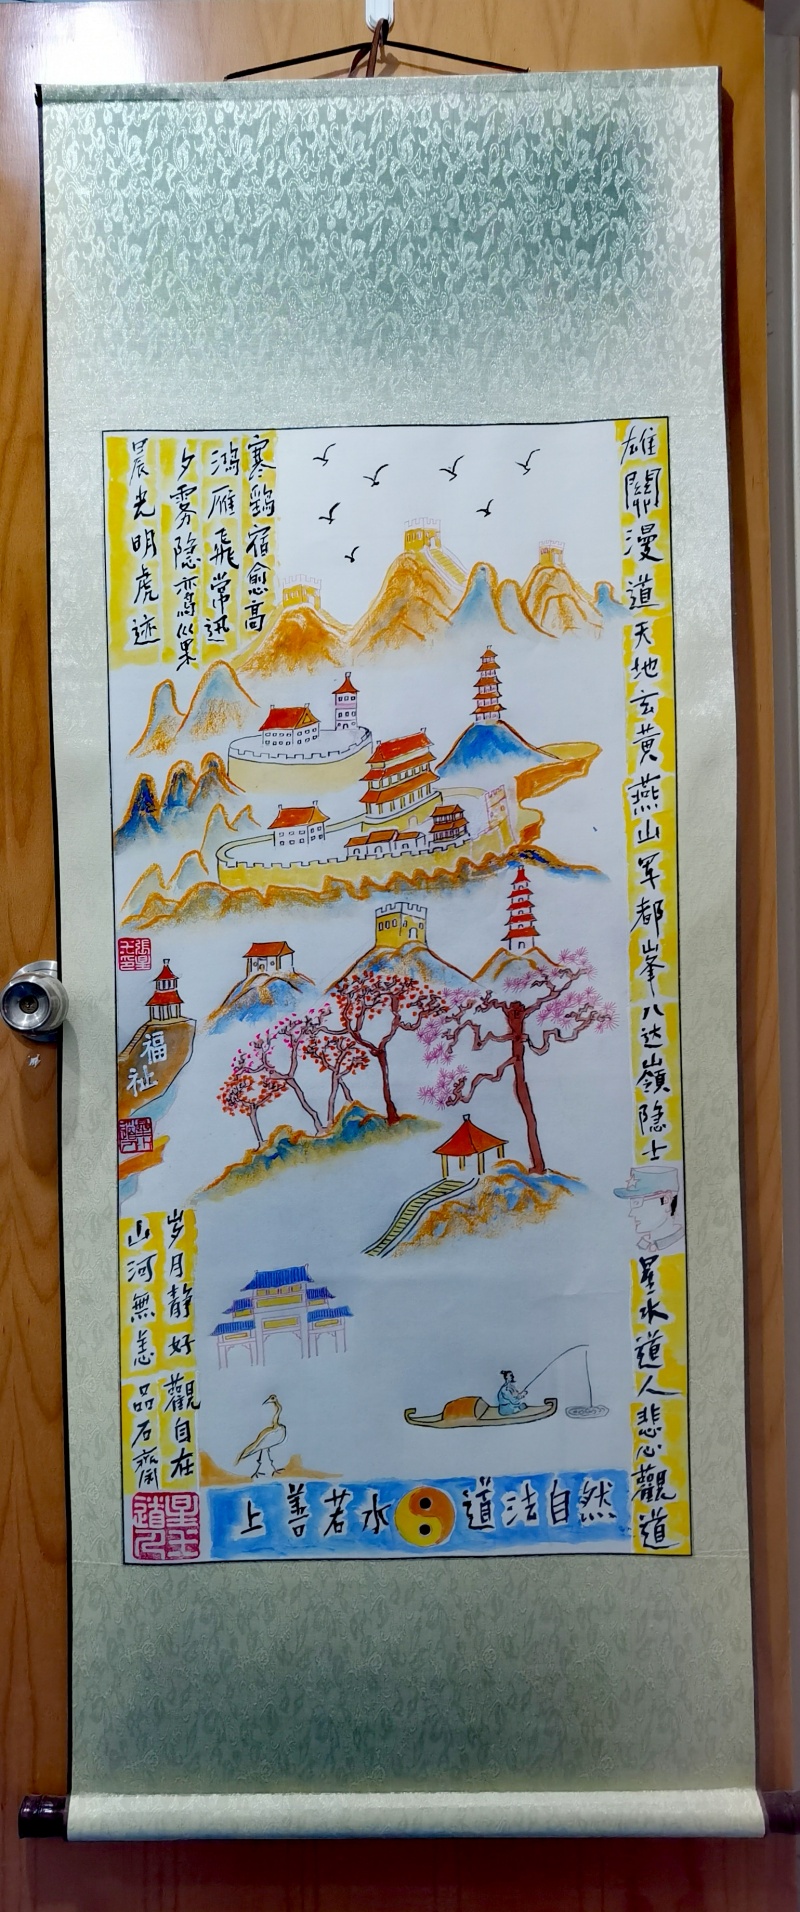 雄關漫道天地玄黃燕山军都峯八达嶺隐士
星水道人悲心觀道
寒鷄宿愈高
鸿雁飛常迅
夕雾隐鸾巢
晨光明虎迹
福祉
岁月静好 觀自在
山河無恙 品石齋
上善若水 道法自然